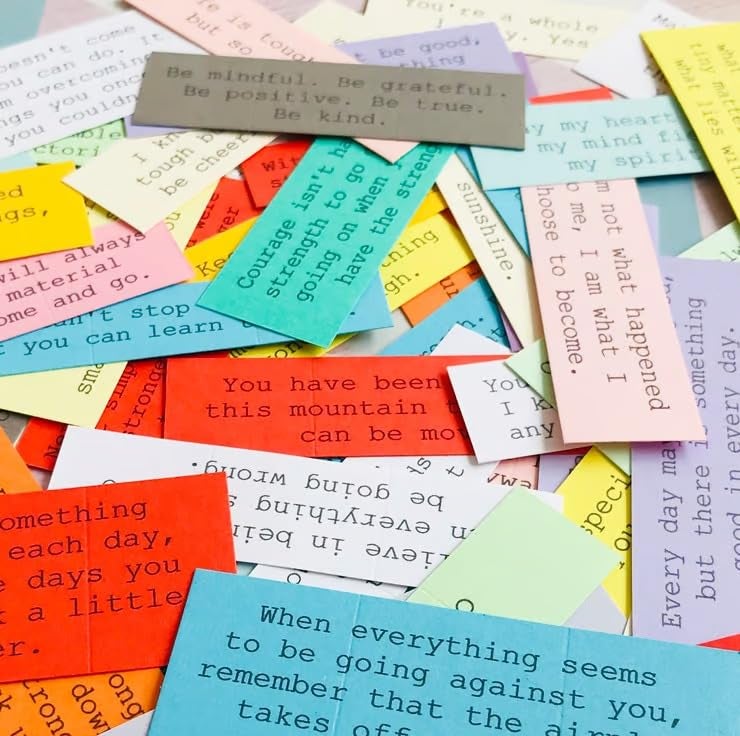 You're a whole
y. Yes
re is tough
but so
oesn't come
ou can do. It
m overcoming
ngs you once
you couldn
t be good,
thing
what
tiny matte
what lies wit
Be mindful. Be grateful.
Be positive. Be true.
Be kind.
y my heart
my mind fi
my spiri
ble
ctori
I kn
tough b
be cheer
Wit
ed
gs,
Courage isn't ha
strength to go
going on when
have the streng
sunshine.
m not what happened
o me, I am what I
hoose to become.
will always
material
ome and go.
Kee
ching
gh.
an't stop
t you can learn
Every day may
but there is something
good in every day.
You have been
this mountain
can be mov
You
I k
any
sma
s simp
stronge
ieve in bei
n everything s
be going wrong.
speci
omething
each day,
e days you
k a little
er.
When everything seems
to be going against you,
remember that the airpl
takes off
rong
down
ong